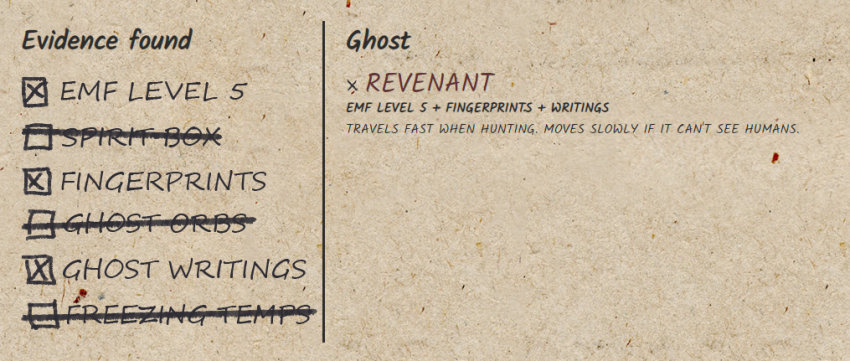 Evidence found
EMF LEVEL 5
SPIRIT BOX
FINGERPRINTS
GHOST ORBS
GHOST WRITINGS
FREEZING TEMPS
Ghost
x REVENANT
EMF LEVEL 5 + FINGERPRINTS + WRITINGS
TRAVELS FAST WHEN HUNTING. MOVES SLOWLY IF IT CAN'T SEE HUMANS.